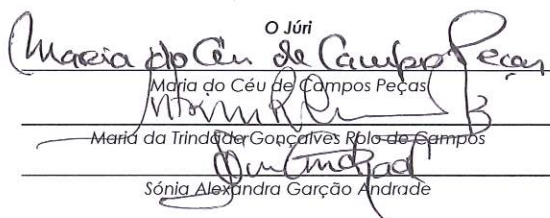 O Júri
Maria do Céu de Campos Peças
Maria do Céu de Campos Peças
Maria da Trindade Gonçalves Rolo de Campos
Sónia Alexandra Garção Andrade